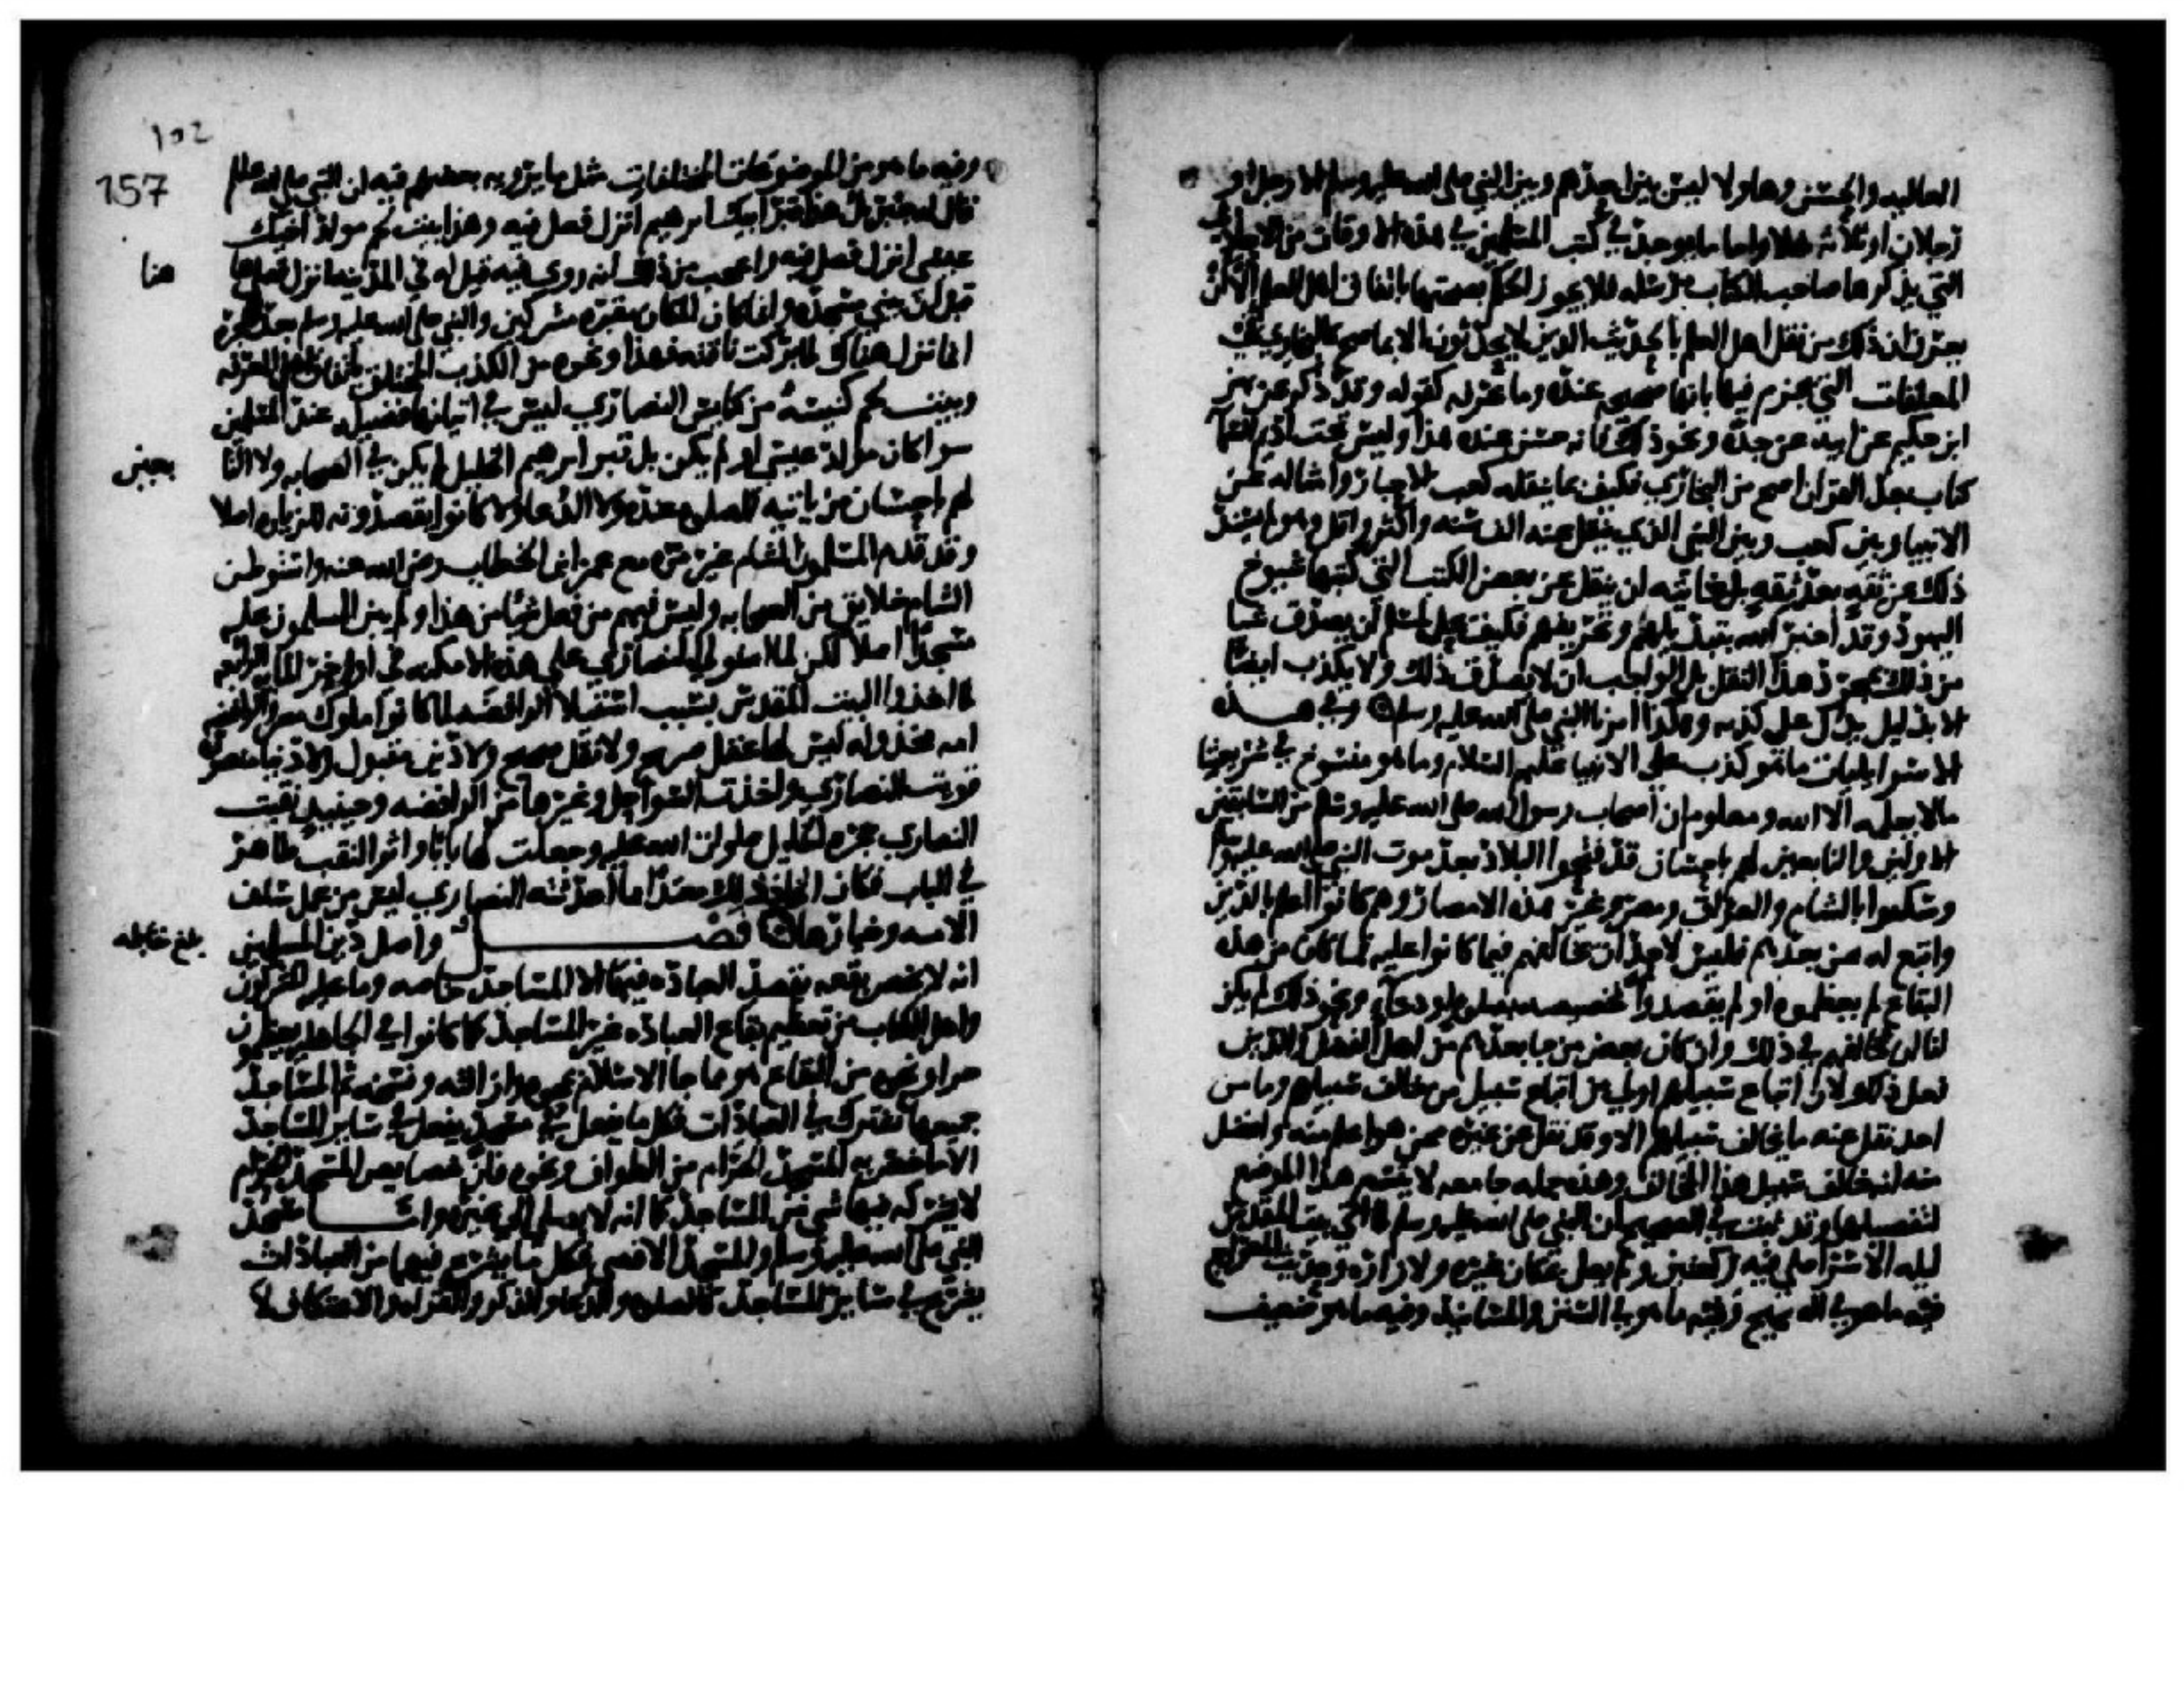 العاليه والحسن وهاولا ليس بين احدهم وبين النبي صلى الله عليه وسلم الا رجل او
رجلان او ثلاثه مثلا واما ما يوجد في كتب المسلمين في هذه الاوقات من الاحاديث
التي يذكرها صاحب الكتاب مرسله فلا يجوز الحكم بصحتها باتفاق اهل العلم الا ان
يعرف ان ذلك من نقل اهل العلم بالحديث الذين لا يحدثون الا بما صح كالبخاري في
المعلقات التي يجزم فيها بانها صحيحه عنده وما عزله كقوله وقد ذكر عن بهز
ابن حكيم عن ابيه عن جده ونحو ذلك فانه حسن عنده هذا وليس تحت اديم السما
كتاب بعد القران اصح من البخاري فكيف بما ينقله كعب الاحبار وامثاله عن
الانبيا وبين كعب وبين النبي الذي ينقل عنه الف سنه واكثر واقل وهو لم يسند
ذلك عن ثقه بعد ثقه بل غايته ان ينقل عن بعض الكتب التي كتبها شيوخ
اليهود وقد اخبر الله بتبديلهم وتحريفهم فكيف يحل لمسلم ان يصدق شيا
من ذلك بمجرد هذا النقل بل الواجب ان لا يصدق ذلك ولا يكذب ايضا
الا بدليل يدل على كذبه وهكذا امرنا النبي صلى الله عليه وسلم وفي هذه
الاسرايليات ما هو كذب على الانبيا عليهم السلام وما هو منسوخ في شريعتنا
مالا يعلمه الا الله ومعلوم ان اصحاب رسول الله صلى الله عليه وسلم من السابقين
الاولين والتابعين لهم باحسان قد فتحوا البلاد بعد موت النبي صلى الله عليه وسلم
وسكنوا بالشام والعراق ومصر وغير هذه الامصار وهم كانوا اعلم بالدين
واتبع له من بعدهم فليس لاحد ان يخالفهم فيما كانوا عليه فما كان من هذه
البقاع لم يعظموه او لم يقصدوا تخصيصه بصلوه او دعا او نحو ذلك لم يكن
لنا ان نخالفهم في ذلك وان كان بعض من جا بعدهم من اهل الفضل والدين
فعل ذلك لان اتباع سبيلهم اولى من اتباع سبيل من خالف سبيلهم وما من
احد نقل عنه ما يخالف سبيلهم الا وقد نقل عن غيره ممن هو اعلم منه وافضل
منه انه خالف سبيل هذا المخالف وهذه جمله جامعه لا يتسع هذا الموضع
لتفصيلها وقد ثبت في الصحيح ان النبي صلى الله عليه وسلم لما اتى بيت المقدس
ليله الاسرا صلى فيه ركعتين ولم يصل بمكان غيره ولا زاره وحديث المعراج
فيه ما هو في الصحيح وفيه ما هو في السنن والمسانيد وفيه ما هو ضعيف
102
157
وفيه ما هو من الموضوعات المختلقات مثل ما يرويه بعضهم فيه ان النبي صلى الله عليه وسلم
قال له جبريل هذا قبر ابيك ابرهيم انزل فصل فيه وهذا بيت لحم مولد اخيك
عيسى انزل فصل فيه واعجب من ذلك انه روى فيه قيل له في المدينه انزل فصل هاهنا
هنا
قبل ان يبنى مسجده وانما كان المكان مقبره مشركين والنبي صلى الله عليه وسلم بعد الهجره
انما نزل هناك لما بركت ناقته فهذا ونحوه من الكذب المختلق باتفاق اهل المعرفه
وبيت لحم كنيسه من كنايس النصارى ليس في اتيانها فضيله عند المسلمين
سوا كان مولد عيسى او لم يكن بل قبر ابرهيم الخليل لم يكن في الصحابه ولا التا
بعين
لهم باحسان من ياتيه للصلوه عنده ولا الدعا ولا كانوا يقصدونه للزياره اصلا
وقد قدم المسلمون الشام غير مره مع عمر ابن الخطاب رضي الله عنه واستوطن
الشام خلايق من الصحابه وليس فيهم من فعل شيا من هذا ولم يبن المسلمون عليه
مسجدا اصلا لكن لما استولى النصارى على هذه الامكنه في اواخر المايه الرابعه
لما اخذوا البيت المقدس بسبب استيلا الرافضه لما كانوا ملوك مصر والرافضه
امه مخذوله ليس لها عقل صريح ولا نقل صحيح ولا دين مقبول ولا دنيا منصوره
قويت النصارى واخذت السواحل وغيرها من الرافضه وحينيد نقبت
النصارى حجره الخليل صلوات الله عليه وجعلت لها بابا واثر النقب ظاهر
في الباب فكان اتخاذ ذلك معبدا مما احدثته النصارى ليس من عمل سلف
الامه وخيارها فصل واصل دين المسلمين
بلغ مقابله
انه لا تختص بقعه بقصد العباده فيها الا المساجد خاصه وما عليه المشركون
واهل الكتاب من تعظيم بقاع للعباده غير المساجد كما كانوا في الجاهليه يعظمون
حرا ونحوه من البقاع هو مما جا الاسلام بمحوه وازالته ونسخه ثم المساجد
جميعها تشترك في العبادات فكل ما يفعل في مسجد يفعل في ساير المساجد
الا ما خص به المسجد الحرام من الطواف ونحوه فان خصايص المسجد الحرام
لا يشركه فيها شي من المساجد كما انه لا يصلى الى غيره واما مسجد
النبي صلى الله عليه وسلم والمسجد الاقصى فكل ما يشرع فيهما من العبادات
يشرع في ساير المساجد كالصلوه والدعا والذكر والقراه والاعتكاف لا